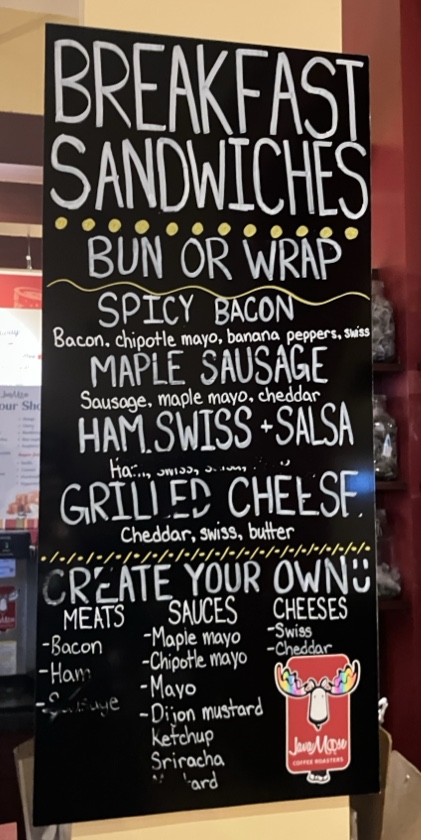 BREAKFAST
SANDWICHES
BUN OR WRAP
SPICY BACON
Bacon, chipotle mayo, banana peppers, swiss
MAPLE SAUSAGE
Sausage, maple mayo, cheddar
HAM, SWISS + SALSA
GRILLED CHEESE
Cheddar, swiss, butter
CREATE YOUR OWN
MEATS
-Bacon
-Ham
SAUCES
-Maple mayo
-Chipotle mayo
-Mayo
-Dijon mustard
Ketchup
Sriracha
CHEESES
-Swiss
-Cheddar
JavaMoose
COFFEE ROASTERS